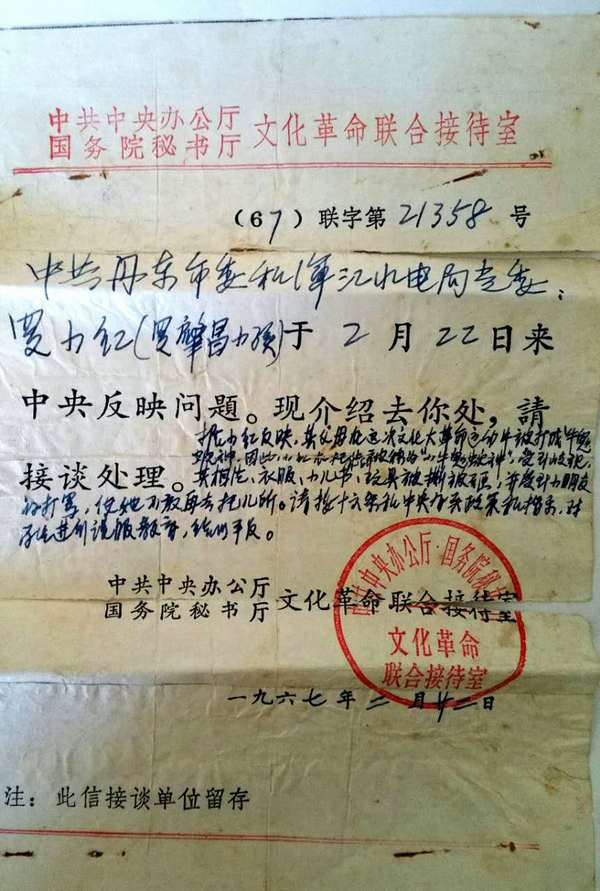 中共中央办公厅
国务院秘书厅 文化革命联合接待室
(67)联字第21358号
中共丹东市委和浑江水电局党委:
贾小红(贾肇昌小孩)于2月22日来
中央反映问题。现介绍去你处,請
接谈处理。
据小红反映,其父母在这次文化大革命运动中被打成"牛鬼
蛇神",因此小红在托儿所被称为"小牛鬼蛇神",受到歧视,
其相片、衣服、玩具被撕被,并受到小朋友
的打骂,使她不敢再去托儿所。请按十六条和中央有关政策和指示,对
进行说服教育,给以平反。
中共中央办公厅
国务院秘书厅 文化革命联合接待室
中共中央办公厅·国务院秘
文化革命
联合接待室
一九六七年二月廿二日
注:此信接谈单位留存